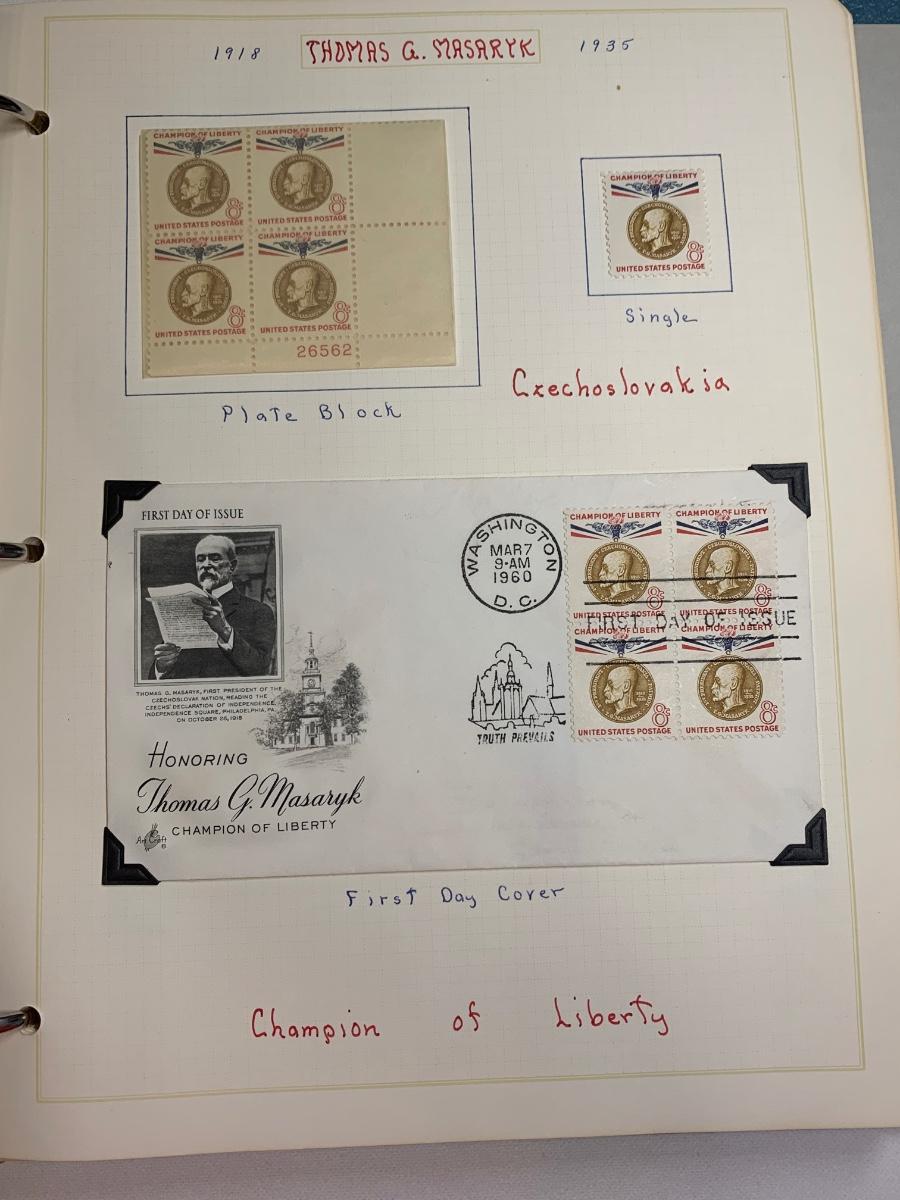 1918 THOMAS G. MASARYK 1935
CHAMPION OF LIBERTY CHAMPION OF LIBERTY
8¢ 8¢
UNITED STATES POSTAGE UNITED STATES POSTAGE
CHAMPION OF LIBERTY CHAMPION OF LIBERTY
8¢ 8¢
UNITED STATES POSTAGE UNITED STATES POSTAGE
26562
Plate Block
CHAMPION OF LIBERTY
8¢
UNITED STATES POSTAGE
Single
Czechoslovakia
FIRST DAY OF ISSUE
THOMAS G. MASARYK, FIRST PRESIDENT OF THE
CZECHOSLOVAK NATION, READING THE
CZECHS' DECLARATION OF INDEPENDENCE,
INDEPENDENCE SQUARE, PHILADELPHIA, PA.
ON OCTOBER 26, 1918
HONORING
Thomas G. Masaryk
CHAMPION OF LIBERTY
Art Craft
®
WASHINGTON
MAR 7
9-AM
1960
D. C.
TRUTH PREVAILS
CHAMPION OF LIBERTY CHAMPION OF LIBERTY
8¢ 8¢
UNITED STATES POSTAGE UNITED STATES POSTAGE
FIRST DAY OF ISSUE
CHAMPION OF LIBERTY CHAMPION OF LIBERTY
8¢ 8¢
UNITED STATES POSTAGE UNITED STATES POSTAGE
First Day Cover
Champion of Liberty